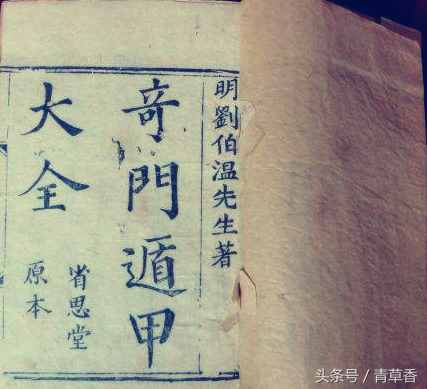 明劉伯温先生著
奇門遁甲
大全
省思堂
原本
头条号 / 青草香